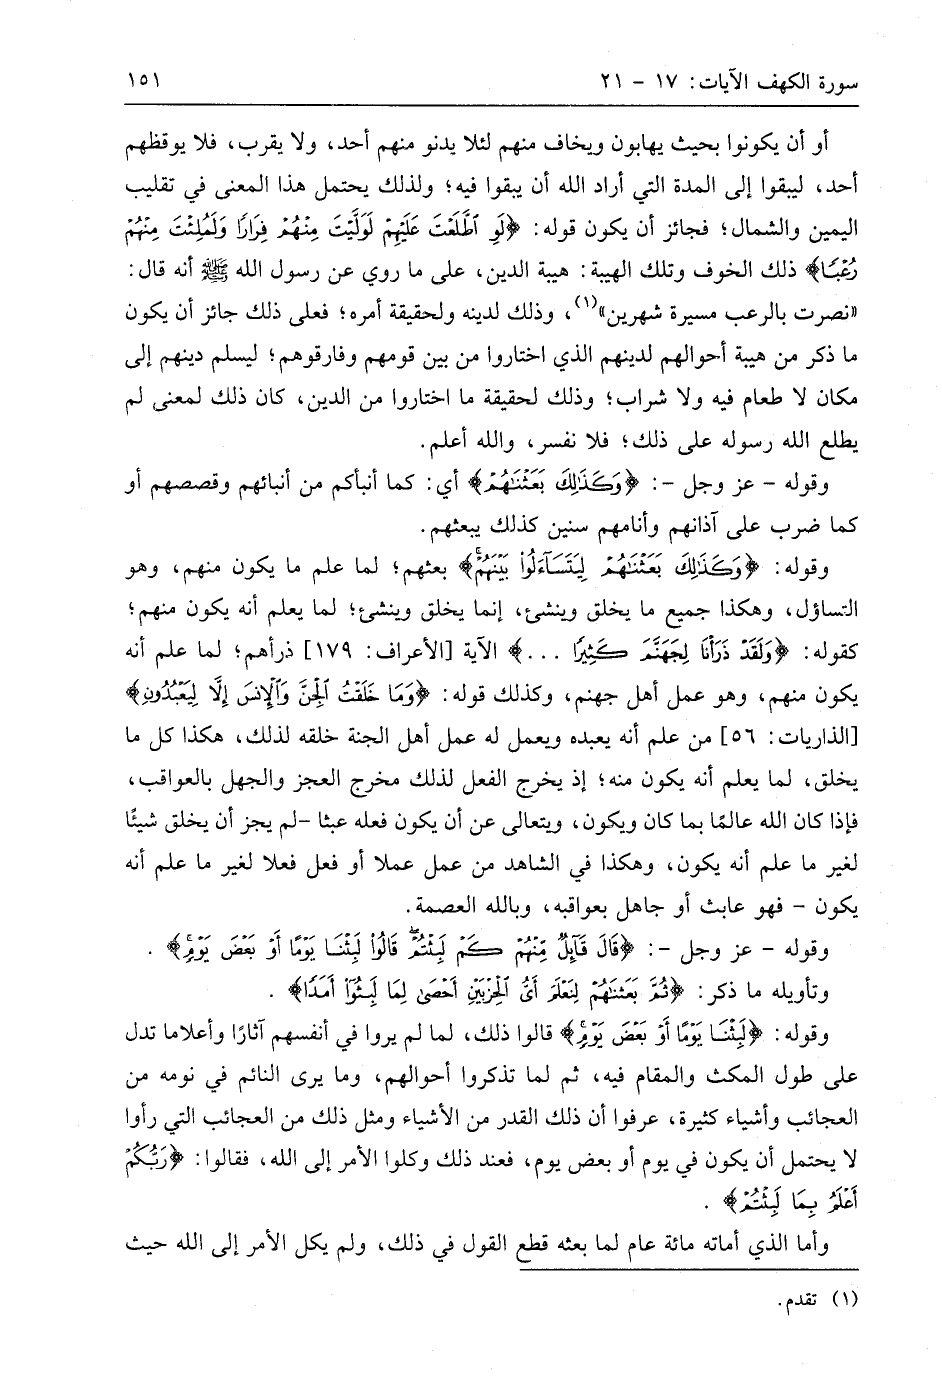 سورة الكهف الآيات: ١٧ - ٢١ ١٥١
أو أن يكونوا بحيث يهابون ويخاف منهم لئلا يدنو منهم أحد، ولا يقرب، فلا يوقظهم
أحد، ليبقوا إلى المدة التي أراد الله أن يبقوا فيه؛ ولذلك يحتمل هذا المعنى في تقليب
اليمين والشمال؛ فجائز أن يكون قوله: ﴿لَوِ ٱطَّلَعْتَ عَلَيْهِمْ لَوَلَّيْتَ مِنْهُمْ فِرَارًا وَلَمُلِئْتَ مِنْهُمْ
رُعْبًا﴾ ذلك الخوف وتلك الهيبة: هيبة الدين، على ما روي عن رسول الله ﷺ أنه قال:
«نصرت بالرعب مسيرة شهرين»(١)، وذلك لدينه ولحقيقة أمره؛ فعلى ذلك جائز أن يكون
ما ذكر من هيبة أحوالهم لدينهم الذي اختاروا من بين قومهم وفارقوهم؛ ليسلم دينهم إلى
مكان لا طعام فيه ولا شراب؛ وذلك لحقيقة ما اختاروا من الدين، كان ذلك لمعنى لم
يطلع الله رسوله على ذلك؛ فلا نفسر، والله أعلم.
وقوله - عز وجل -: ﴿وَكَذَٰلِكَ بَعَثْنَٰهُمْ﴾ أي: كما أنبأكم من أنبائهم وقصصهم أو
كما ضرب على آذانهم وأنامهم سنين كذلك يبعثهم.
وقوله: ﴿وَكَذَٰلِكَ بَعَثْنَٰهُمْ لِيَتَسَآءَلُوا۟ بَيْنَهُمْ﴾ بعثهم؛ لما علم ما يكون منهم، وهو
التساؤل، وهكذا جميع ما يخلق وينشئ، إنما يخلق وينشئ؛ لما يعلم أنه يكون منهم؛
كقوله: ﴿وَلَقَدْ ذَرَأْنَا لِجَهَنَّمَ كَثِيرًا ...﴾ الآية [الأعراف: ١٧٩] ذرأهم؛ لما علم أنه
يكون منهم، وهو عمل أهل جهنم، وكذلك قوله: ﴿وَمَا خَلَقْتُ ٱلْجِنَّ وَٱلْإِنسَ إِلَّا لِيَعْبُدُونِ﴾
[الذاريات: ٥٦] من علم أنه يعبده ويعمل له عمل أهل الجنة خلقه لذلك، هكذا كل ما
يخلق، لما يعلم أنه يكون منه؛ إذ يخرج الفعل لذلك مخرج العجز والجهل بالعواقب،
فإذا كان الله عالمًا بما كان ويكون، ويتعالى عن أن يكون فعله عبثا -لم يجز أن يخلق شيئًا
لغير ما علم أنه يكون، وهكذا في الشاهد من عمل عملا أو فعل فعلا لغير ما علم أنه
يكون - فهو عابث أو جاهل بعواقبه، وبالله العصمة.
وقوله - عز وجل -: ﴿قَالَ قَآئِلٌ مِّنْهُمْ كَمْ لَبِثْتُمْ قَالُوا۟ لَبِثْنَا يَوْمًا أَوْ بَعْضَ يَوْمٍ﴾ .
وتأويله ما ذكر: ﴿ثُمَّ بَعَثْنَٰهُمْ لِنَعْلَمَ أَىُّ ٱلْحِزْبَيْنِ أَحْصَىٰ لِمَا لَبِثُوٓا۟ أَمَدًا﴾ .
وقوله: ﴿لَبِثْنَا يَوْمًا أَوْ بَعْضَ يَوْمٍ﴾ قالوا ذلك، لما لم يروا في أنفسهم آثارًا وأعلاما تدل
على طول المكث والمقام فيه، ثم لما تذكروا أحوالهم، وما يرى النائم في نومه من
العجائب وأشياء كثيرة، عرفوا أن ذلك القدر من الأشياء ومثل ذلك من العجائب التي رأوا
لا يحتمل أن يكون في يوم أو بعض يوم، فعند ذلك وكلوا الأمر إلى الله، فقالوا: ﴿رَبُّكُمْ
أَعْلَمُ بِمَا لَبِثْتُمْ﴾ .
وأما الذي أماته مائة عام لما بعثه قطع القول في ذلك، ولم يكل الأمر إلى الله حيث
(١) تقدم.